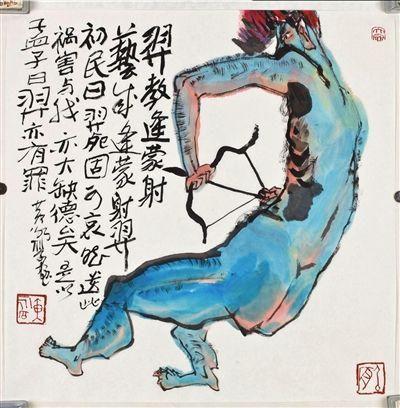 羿教逢蒙射
藝成逢蒙射羿
初民曰羿死固可哀然遗此
祸害与亦大缺德矣是以
孟子曰羿亦有罪 黄